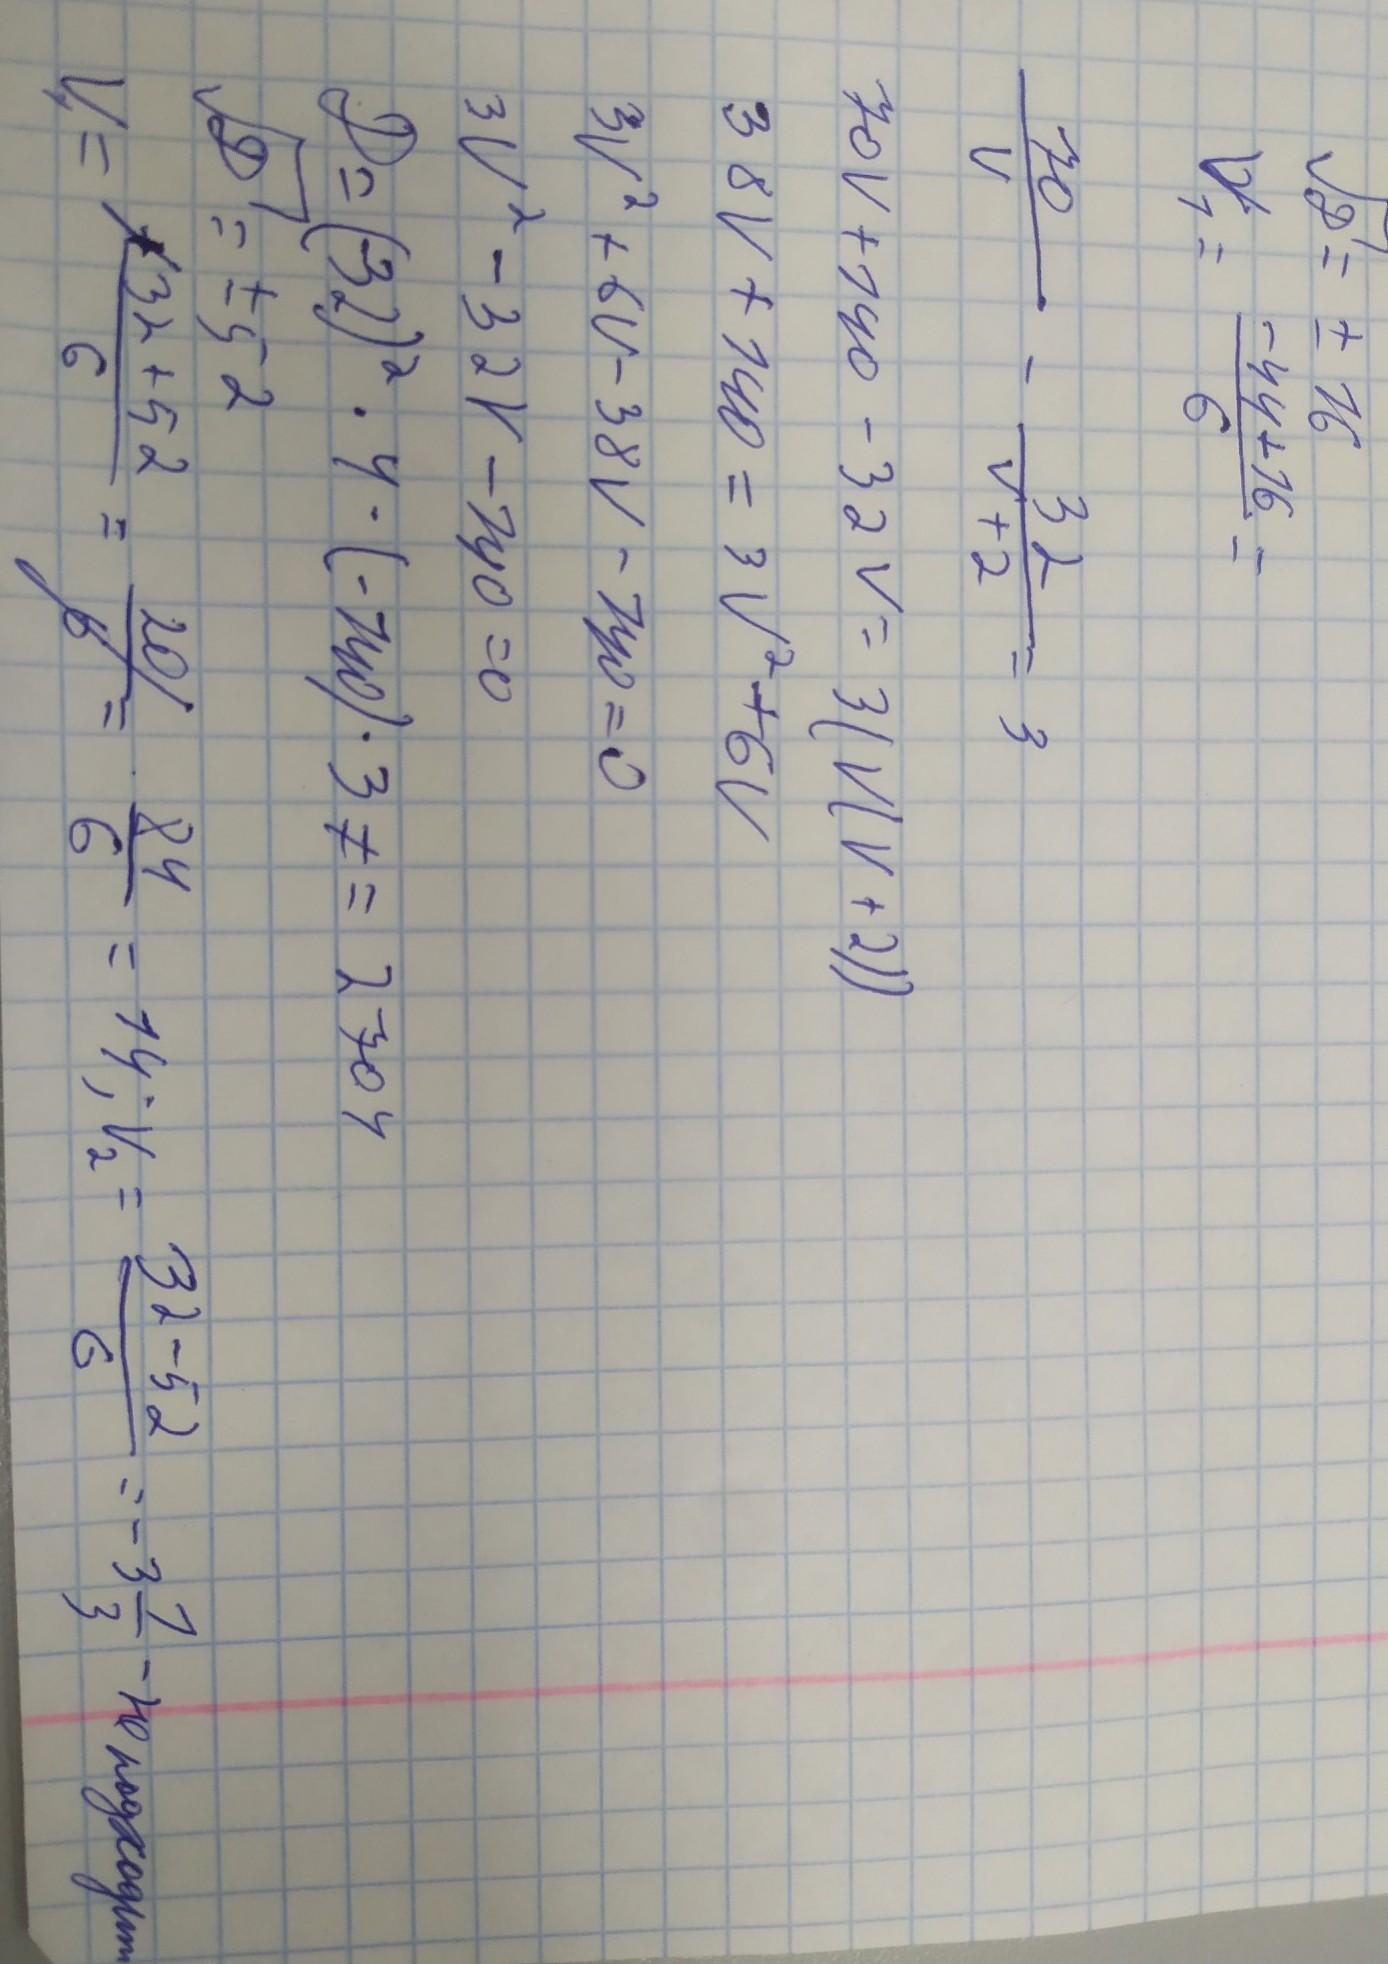 √D = ± 16
V₁ = (-44+16)/6 =
70/V - 32/(V+2) = 3
70V + 140 - 32V = 3(V(V+2))
38V + 140 = 3V² + 6V
3V² + 6V - 38V - 140 = 0
3V² - 32V - 140 = 0
D = (32)² · 4 · (-140) · 3 = 2704
√D = ± 52
V₁ = (32+52)/6 = 84/6 = 14; V₂ = (32-52)/6 = -3 1/3 - не подходит